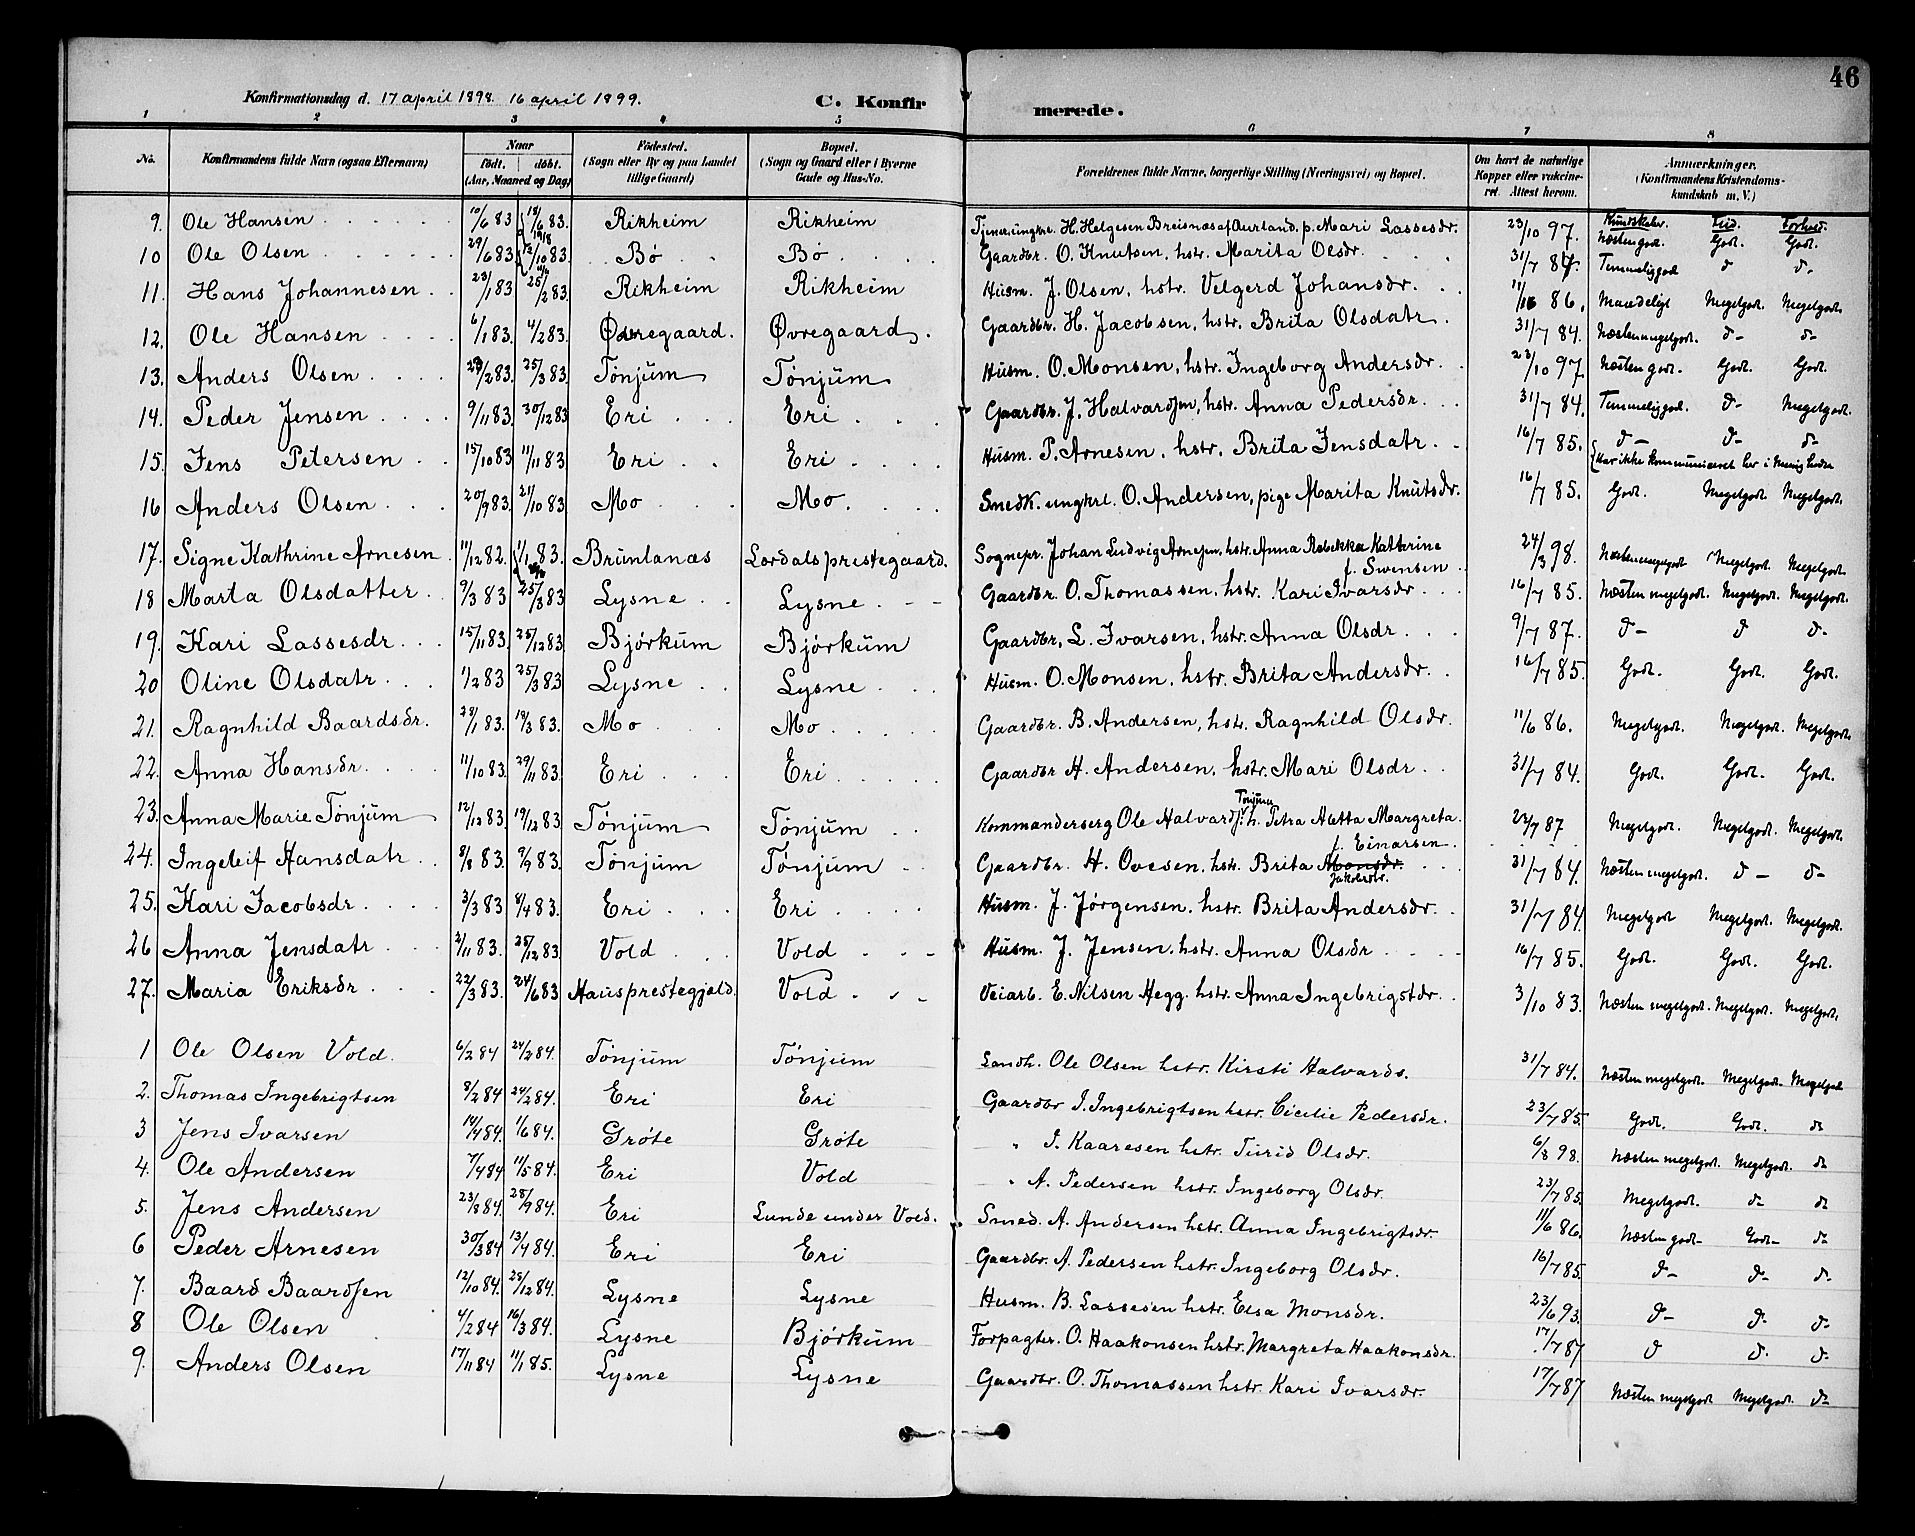 46
Konfirmationsdag d. 17 april 1898. 16 april 1899. C. Konfirmerede.
1 2 3 4 5 6 7 8
No. Konfirmandens fulde Navn (ogsaa Efternavn) Naar født. døbt. (Aar, Maaned og Dag) Fødested. (Sogn eller By og paa Landet tillige Gaard) Bopæl. (Sogn og Gaard eller i Byerne Gade og Hus-No. Forældrenes fulde Navne, borgerlige Stilling (Næringsvei) og Bopæl. Om havt de naturlige Kopper eller vakcineret. Attest herom. Anmærkninger. (Konfirmandens Kristendomskundskab m. V.)
Kundskaber. Flid. Forhold.
9. Ole Hansen 10/6 83 18/6 83. Rikheim Rikheim Tjener, ungkrl. H. Helgesen Breisnæs af Aurland, p. Mari Lassesdr. 23/10 97. Næsten godt. Godt. Godt.
10 Ole Olsen 29/6 83 12/10 83. Bø Bø Gaardbr. O. Knutsen, hstr. Marita Olsdr. 31/7 84. Temmelig godt d d-
11. Hans Johannesen 23/1 83 25/2 83. Rikheim Rikheim Husm. J. Olsen, hstr. Velgerd Johansdr. 11/6 86. Maadeligt Megetgodt. Megetgodt.
12. Ole Hansen 6/1 83. 4/2 83. Øvregaard. Øvregaard. Gaardbr. H. Jacobsen, hstr. Brita Olsdatr. 31/7 84. Næsten megetgodt. d- d-
13. Anders Olsen 28/2 83. 25/3 83. Tønjum Tønjum Husm. O. Monsen, hstr. Ingeborg Andersdr. 23/10 97 Næsten godt. Godt. Godt.
14. Peder Jensen 9/11 83. 30/12 83 Eri Eri Gaardbr. J. Halvardsen, hstr. Anna Pedersdr. 31/7 84. Temmelig godt. d- Megetgodt.
15. Jens Petersen 15/10 83 11/11 83 Eri Eri Husm. P. Arnesen, hstr. Brita Jensdatr. 16/7 85. d- d- d-
(Har ikke kommuniceret her i Menigheden
16 Anders Olsen 20/9 83. 21/10 83. Mo Mo Smedk. ungkrl. O. Andersen, pige Marita Knutsdr. 16/7 85. Godt. Megetgodt. Megetgodt.
17. Signe Kathrine Arnesen 11/12 82. 1/1 83. Brunlanæs Lærdals prestegaard. Sognepr. Johan Ludvig Arnesen, hstr. Anna Rebekka Kathrine 24/3 98. Næsten megetgodt Megetgodt. Megetgodt.
f. Swensen
18 Marta Olsdatter 9/3 83 25/3 83 Lysne Lysne Gaardbr. O. Thomassen, hstr. Kari Ivarsdr 16/7 85. Næsten megetgodt. Megetgodt. Megetgodt.
19. Kari Lassesdr 15/11 83. 26/12 83. Bjørkum Bjørkum Gaardbr. L. Ivarsen, hstr. Anna Olsdr 9/7 87. d- d d-
20 Oline Olsdatr 1/2 83 25/3 83 Lysne Lysne Husm. O. Monsen, hstr. Brita Andersdr 16/7 85. Godt. Godt. Godt.
21. Ragnhild Baardsdr. 28/1 83. 19/3 83. Mo Mo Gaardbr. B. Andersen, hstr. Ragnhild Olsdr. 11/6 86. Megetgodt. Megetgodt. Megetgodt.
22. Anna Hansdr 11/10 83. 29/11 83. Eri Eri Gaardbr H. Andersen, hstr. Mari Olsdr 31/7 84. Godt. Godt. Godt.
23. Anna Marie Tønjum 12/12 83. 19/12 83 Tønjum Tønjum Kommanderserg Ole Halvards. Tønjum h. Petra Aletta Margreta 23/7 87 Megetgodt. Megetgodt. Megetgodt.
f. Einarsen
24. Ingeleif Hansdatr 8/8 83. 9/9 83. Tønjum Tønjum Gaardbr. H. Ovesen, hstr. Brita Monsdr. Jakobsdr. 31/7 84. Næsten megetgodt. d- d-
25. Kari Jacobsdr 3/3 83 8/4 83. Eri Eri Husm. J. Jørgensen, hstr. Brita Andersdr. 31/7 84 Megetgodt Megetgodt. Megetgodt.
26 Anna Jensdatr 2/11 83. 25/12 83. Vold Vold Husm. J. Jensen, hstr. Anna Olsdr 16/7 85. Godt. Godt. Godt.
27. Maria Eriksdr 22/3 83. 24/6 83 Hausprestegjeld. Vold Veiarb. E. Nilsen Hegg. hstr. Anna Ingebrigtdr. 3/10 83. Næsten megetgodt. Megetgodt. Megetgodt.
1 Ole Olsen Vold. 6/2 84 24/2 84. Tønjum Tønjum Landh. Ole Olsen hstr. Kirsti Halvards. 31/7 84. Næsten megetgodt. Megetgodt. Megetgodt
2. Thomas Ingebrigtsen 8/2 84 24/2 84. Eri Eri Gaardbr I. Ingebrigtsen hstr. Cicilie Pedersdr. 23/7 85. Godt. Godt. d
3 Jens Ivarsen 14/4 84. 1/6 84. Grøte Grøte " I. Kaaresen hstr. Turid Olsdr. 6/8 98. Næsten megetgodt. Megetgodt. d
4. Ole Andersen 7/4 84 11/5 84. Eri Vold " A. Pedersen hstr. Ingeborg Olsdr. 23/7 85. Megetgodt. d- d
5. Jens Andersen 23/8 84. 28/9 84. Eri Lunde under Vold. Smed. A. Andersen hstr. Anna Ingebrigtsdr. 11/6 86. Næsten godt- Godt- d-
6 Peder Arnesen 30/3 84 13/4 84. Eri Eri Gaardbr. A. Pedersen hstr. Ingeborg Olsdr. 16/7 85. d- d- d-
7. Baard Baardsen 12/10 84. 25/12 84. Lysne Lysne Husm. B. Lassesen hstr. Elsa Monsdr. 23/6 93. d- d- d-
8 Ole Olsen 4/2 84 16/3 84. Lysne Bjørkum Forpagter. O. Haakonsen hstr. Margreta Haakonsdr. 17/7 87 d d- d-
9. Anders Olsen 17/11 84 11/1 85. Lysne Lysne Gaardbr. O. Thomassen hstr. Kari Ivarsdr. 17/7 87 Næsten megetgodt Megetgodt. d-